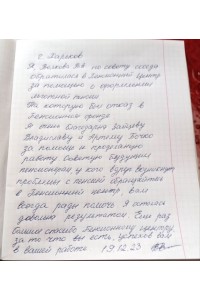 г. Харьков
Я, по совету соседа
обратилась в Пенсионный центр
за помощью в оформлении
льготной пенсии
На которую был отказ в
Пенсионном фонде
Я очень благодарна Зайцеву
Владиславу и Артему Бочко
за помощь и проделанную
работу. Советую будущим
пенсионерам, у кого будут возникнут
проблемы с пенсией обращайтесь
в Пенсионный центр, вам
всегда рады помочь. Я осталась
довольна результатом. Еще раз
большое спасибо Пенсионному центру
за то что вы есть, успехов вам
в вашей работе 19.12.23